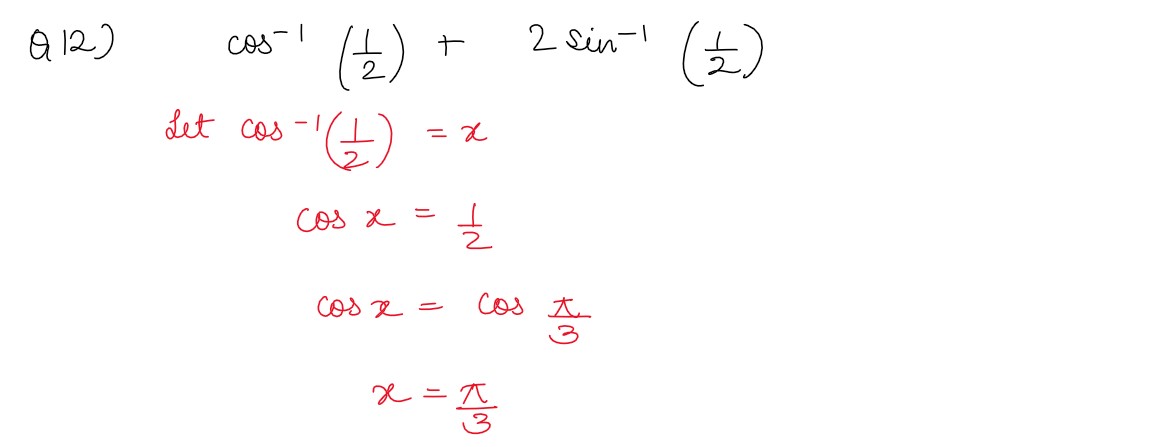 Q12) cos⁻¹ (1/2) + 2 sin⁻¹ (1/2)
Let cos⁻¹(1/2) = x
cos x = 1/2
cos x = cos π/3
x = π/3